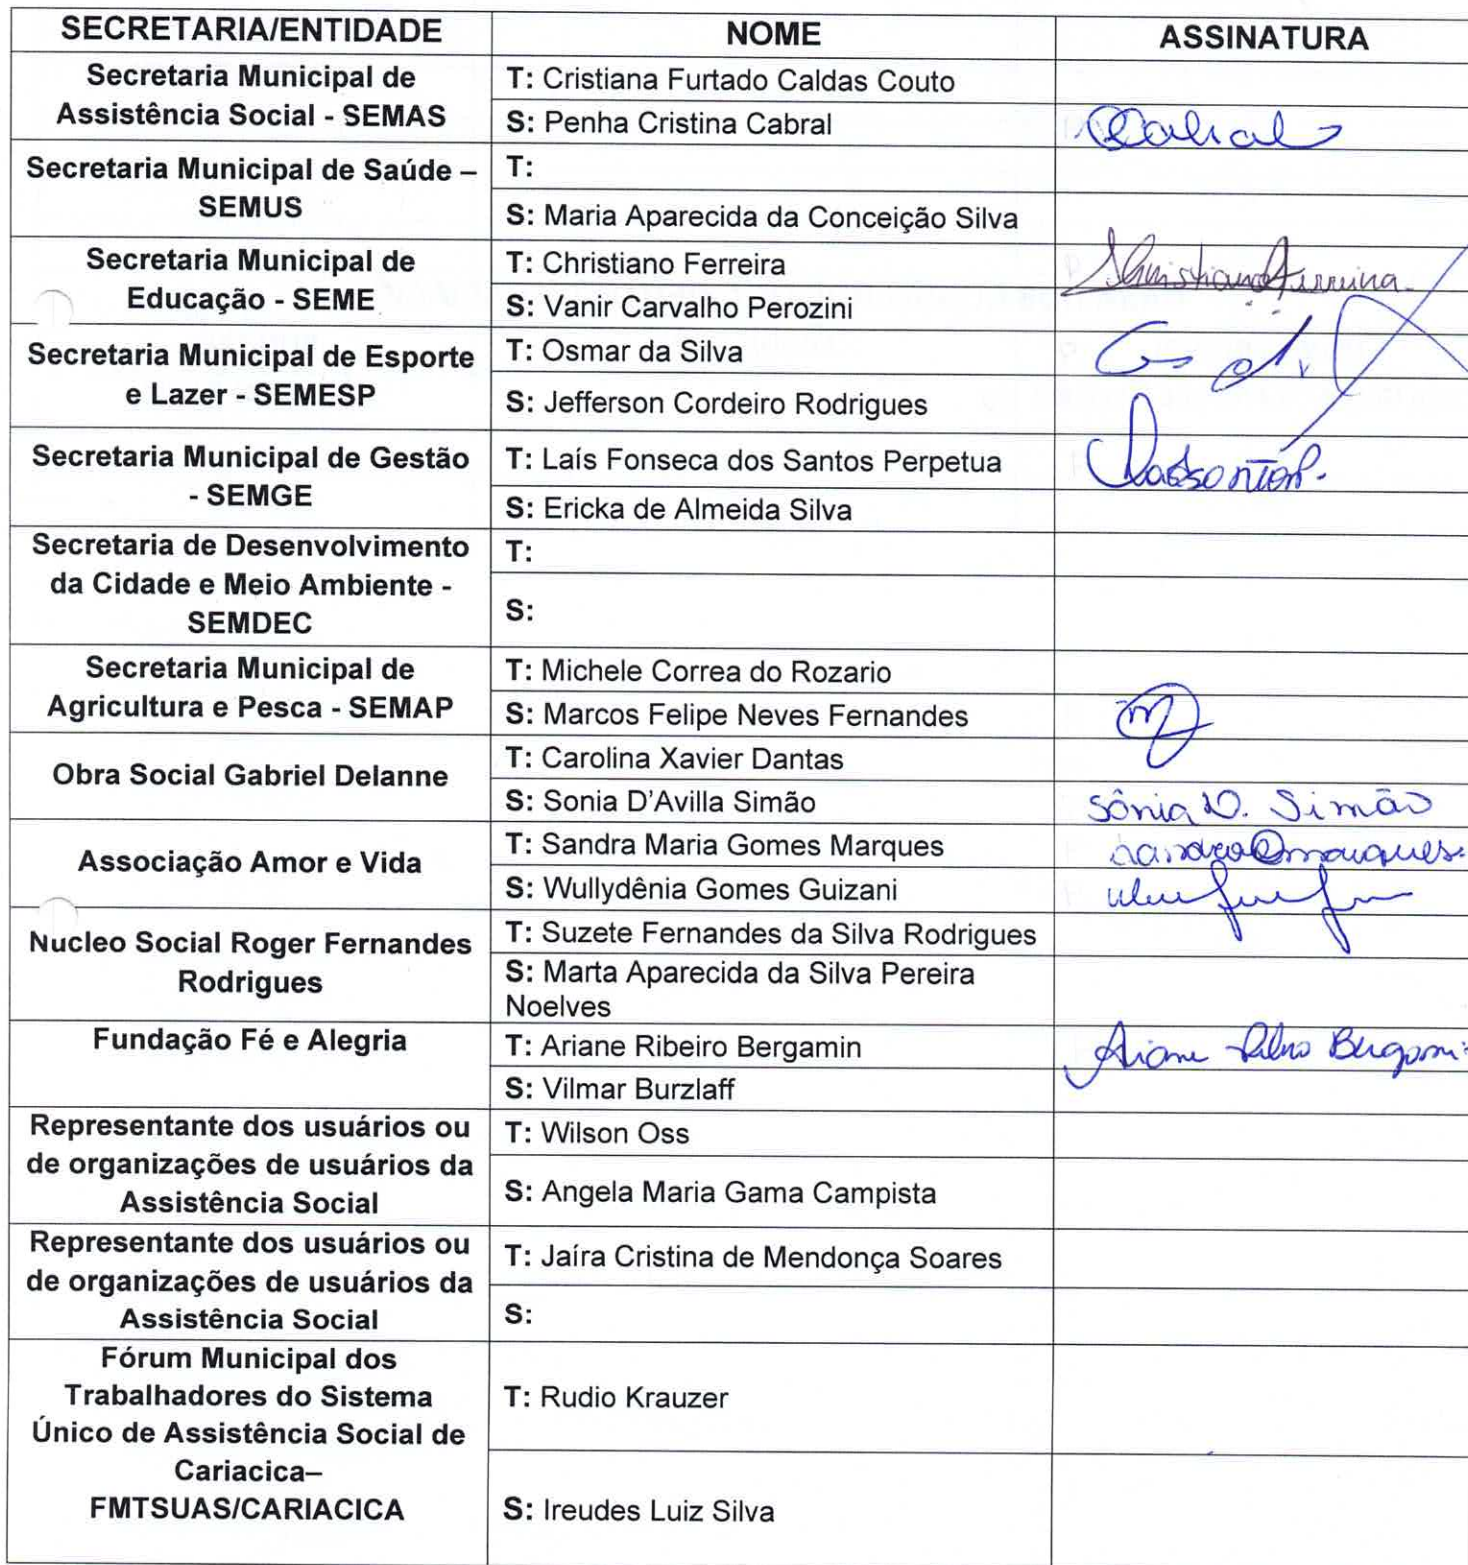 SECRETARIA/ENTIDADE NOME ASSINATURA
Secretaria Municipal de
Assistência Social - SEMAS
T: Cristiana Furtado Caldas Couto
S: Penha Cristina Cabral Cabral
Secretaria Municipal de Saúde –
SEMUS
T:
S: Maria Aparecida da Conceição Silva
Secretaria Municipal de
Educação - SEME
T: Christiano Ferreira Christiano Ferreira
S: Vanir Carvalho Perozini
Secretaria Municipal de Esporte
e Lazer - SEMESP
T: Osmar da Silva
S: Jefferson Cordeiro Rodrigues
Secretaria Municipal de Gestão
- SEMGE
T: Laís Fonseca dos Santos Perpetua
S: Ericka de Almeida Silva
Secretaria de Desenvolvimento
da Cidade e Meio Ambiente -
SEMDEC
T:
S:
Secretaria Municipal de
Agricultura e Pesca - SEMAP
T: Michele Correa do Rozario
S: Marcos Felipe Neves Fernandes
Obra Social Gabriel Delanne
T: Carolina Xavier Dantas
S: Sonia D'Avilla Simão Sônia D. Simão
Associação Amor e Vida
T: Sandra Maria Gomes Marques
S: Wullydênia Gomes Guizani
Nucleo Social Roger Fernandes
Rodrigues
T: Suzete Fernandes da Silva Rodrigues
S: Marta Aparecida da Silva Pereira
Noelves
Fundação Fé e Alegria
T: Ariane Ribeiro Bergamin Ariane
S: Vilmar Burzlaff
Representante dos usuários ou
de organizações de usuários da
Assistência Social
T: Wilson Oss
S: Angela Maria Gama Campista
Representante dos usuários ou
de organizações de usuários da
Assistência Social
T: Jaíra Cristina de Mendonça Soares
S:
Fórum Municipal dos
Trabalhadores do Sistema
Único de Assistência Social de
Cariacica–
FMTSUAS/CARIACICA
T: Rudio Krauzer
S: Ireudes Luiz Silva